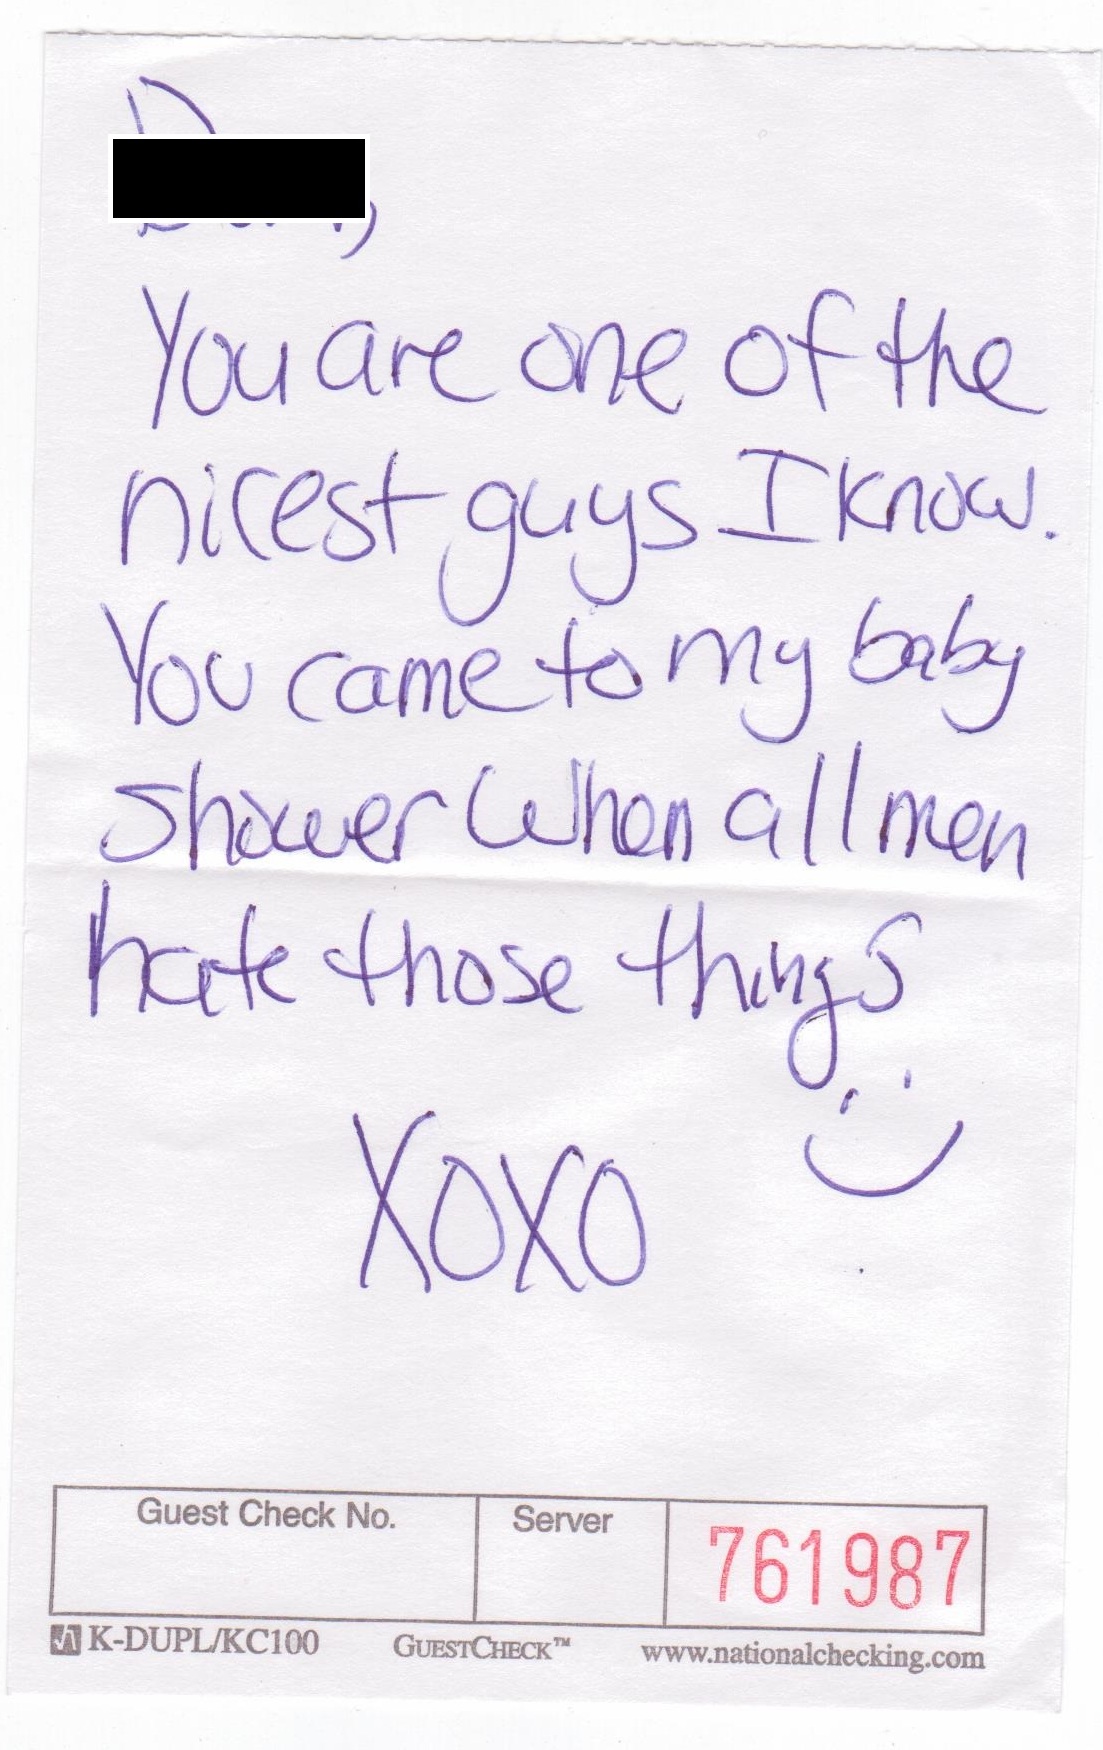 You are one of the
nicest guys I know.
You came to my baby
shower when all men
hate those things
XOXO
Guest Check No.
Server
761987
K-DUPL/KC100
GUESTCHECK™
www.nationalchecking.com